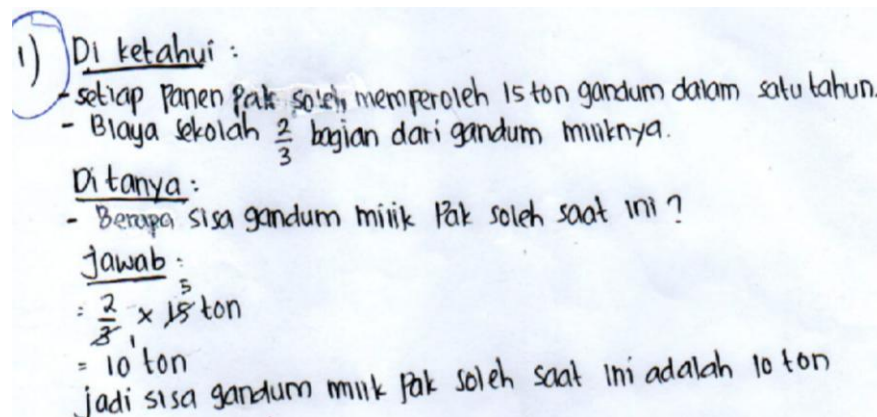 1) Di ketahui :
- setiap Panen Pak soleh memperoleh 15 ton gandum dalam satu tahun.
- Biaya sekolah 2/3 bagian dari gandum miliknya.
Di tanya :
- Berapa sisa gandum milik Pak soleh saat ini ?
jawab :
= 2/3 1 × 15 5 ton
= 10 ton
jadi sisa gandum milik pak soleh saat ini adalah 10 ton